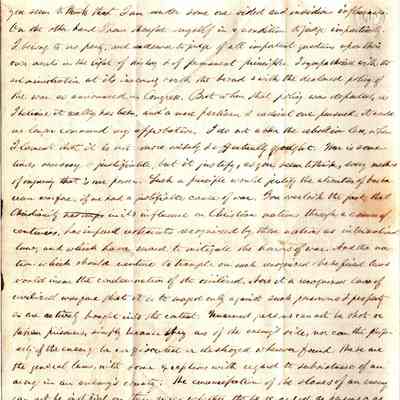 you seem to think that I am under some one sided and insidious influence.
On the other hand I am thought myself in a condition to judge impartially.
I belong to no party, and endeavor to judge of all important questions upon their
own merits in the light of history & of permanent principles. I sympathised with the
administration at its incoming with the broad and with the declared policy of
the war as announced in Congress. But when that policy was departed, as
I believe it really has been, and a more partizan & radical one pursued, it could
no longer command my approbation. I do not abhor the abolition less, when
I lament that it be not more wisely & fought. War is some
times necessary & justifiable, but it not justify, as you seem to think, every mode
of injuring that is in our power. Such a principle would justify the atrocities of barba
rian warfare, if we had a justifiable cause of war. You overlook the fact, that
Christianity in its influence on Christian nations through a course of
centuries, has infused sentiments recognized by these nations as international
laws, and which have served to mitigate the horrors of war. And the na
tion which should venture to trample on such recognized & beneficial laws
would incur the condemnation of the civilized. Now it is a recognized law of
civilized warfare that it is to waged only against such persons & property
as are actively brought into the contest. Unarmed persons cannot be shot or
taken prisoners, simply because they are of the enemy's side, nor can the prop
erty of the enemy be confiscated or destroyed wherever found. These are
the general laws, with some exceptions with regard to subsistence of an
army in an enemy's country. The emancipation of the slaves of an enemy
can not be